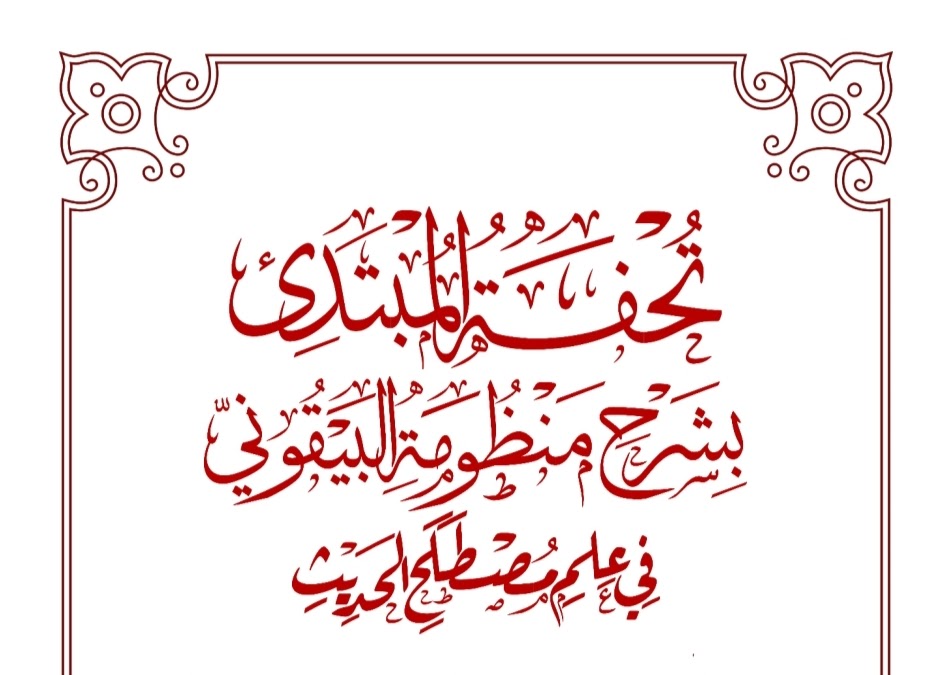 تُحْفَةُ الْمُبْتَدِئ
بِشَرْحِ مَنْظُومَةِ الْبَيْقُونِيّ
فِي عِلْمِ مُصْطَلَحِ الْحَدِيثِ